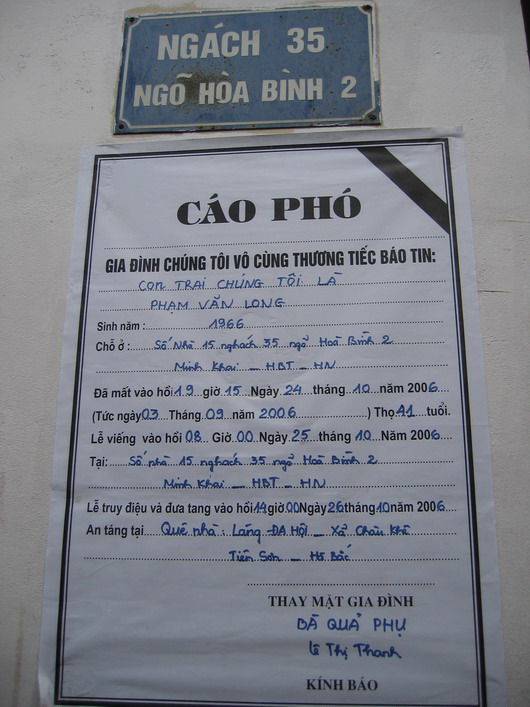 NGÁCH 35
NGÕ HÒA BÌNH 2
CÁO PHÓ
GIA ĐÌNH CHÚNG TÔI VÔ CÙNG THƯƠNG TIẾC BÁO TIN:
CON TRAI CHÚNG TÔI LÀ
PHẠM VĂN LONG
Sinh năm : 1966
Chỗ ở : Số Nhà 15 nghách 35 ngõ Hoà Bình 2
Minh Khai - HBT - HN
Đã mất vào hồi 19 giờ 15 Ngày 24 tháng 10 năm 2006
(Tức ngày 03 Tháng 09 năm 2006 ) Thọ 41 tuổi.
Lễ viếng vào hồi 08 Giờ 00 Ngày 25 tháng 10 Năm 2006
Tại: Số nhà 15 nghách 35 ngõ Hoà Bình 2
Minh Khai - HBT - HN
Lễ truy điệu và đưa tang vào hồi 14 giờ 00 Ngày 26 tháng 10 năm 2006
An táng tại Quê nhà : Làng ĐA HỘI - Xã Châu Khê
Tiên Sơn - Hà Bắc
THAY MẶT GIA ĐÌNH
BÀ QUẢ PHỤ
Lê Thị Thanh
KÍNH BÁO